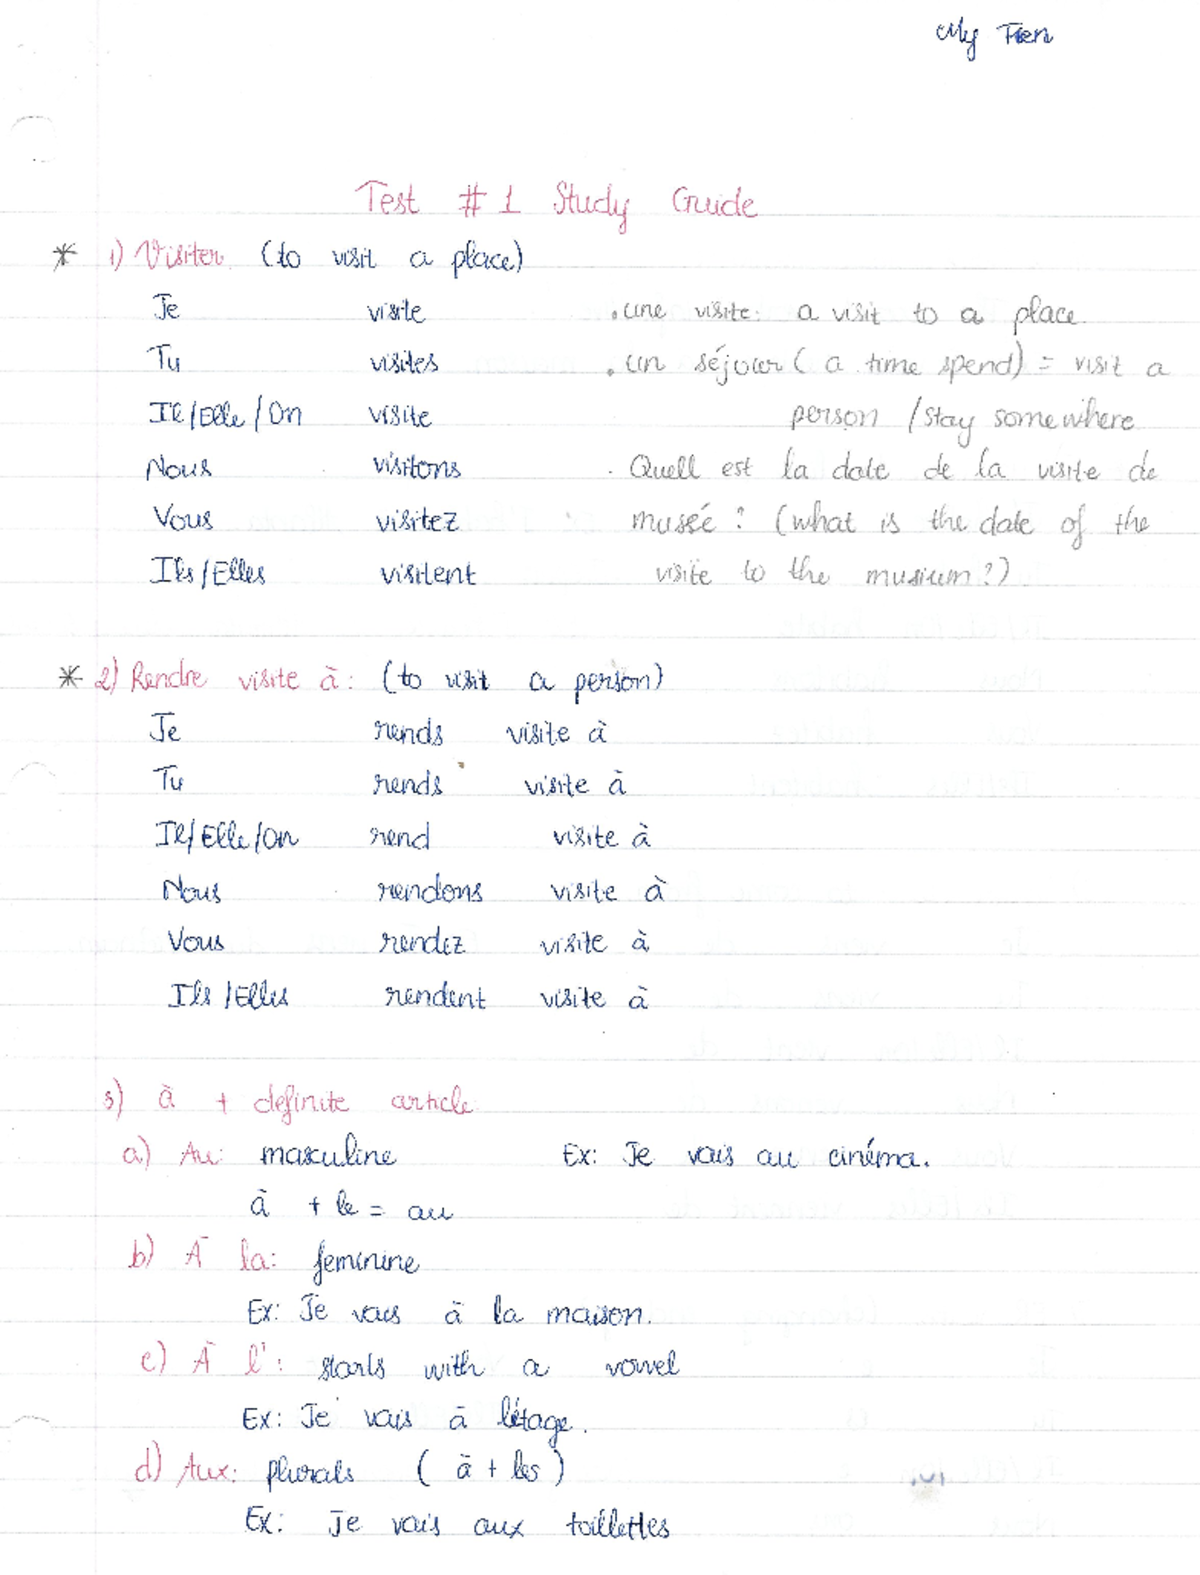 My Tien
Test #1 Study Guide
* 1) Visiter (to visit a place)
Je visite . une visite: a visit to a place
Tu visites . un séjour (a time spend) = visit a
Il/Elle/On visite person / stay somewhere
Nous visitons . Quell est la date de la visite de
Vous visitez musée? (what is the date of the
Ils/Elles visitent visite to the musium?)
* 2) Rendre visite à: (to visit a person)
Je rends visite à
Tu rends visite à
Il/Elle/On rend visite à
Nous rendons visite à
Vous rendez visite à
Ils/Elles rendent visite à
3) à + definite article
a) Au: masculine Ex: Je vais au cinéma.
à + le = au
b) À la: feminine
Ex: Je vais à la maison.
c) À l': starts with a vowel
Ex: Je vais à l'étage.
d) Aux: plurals (à + les)
Ex: Je vais aux toillettes